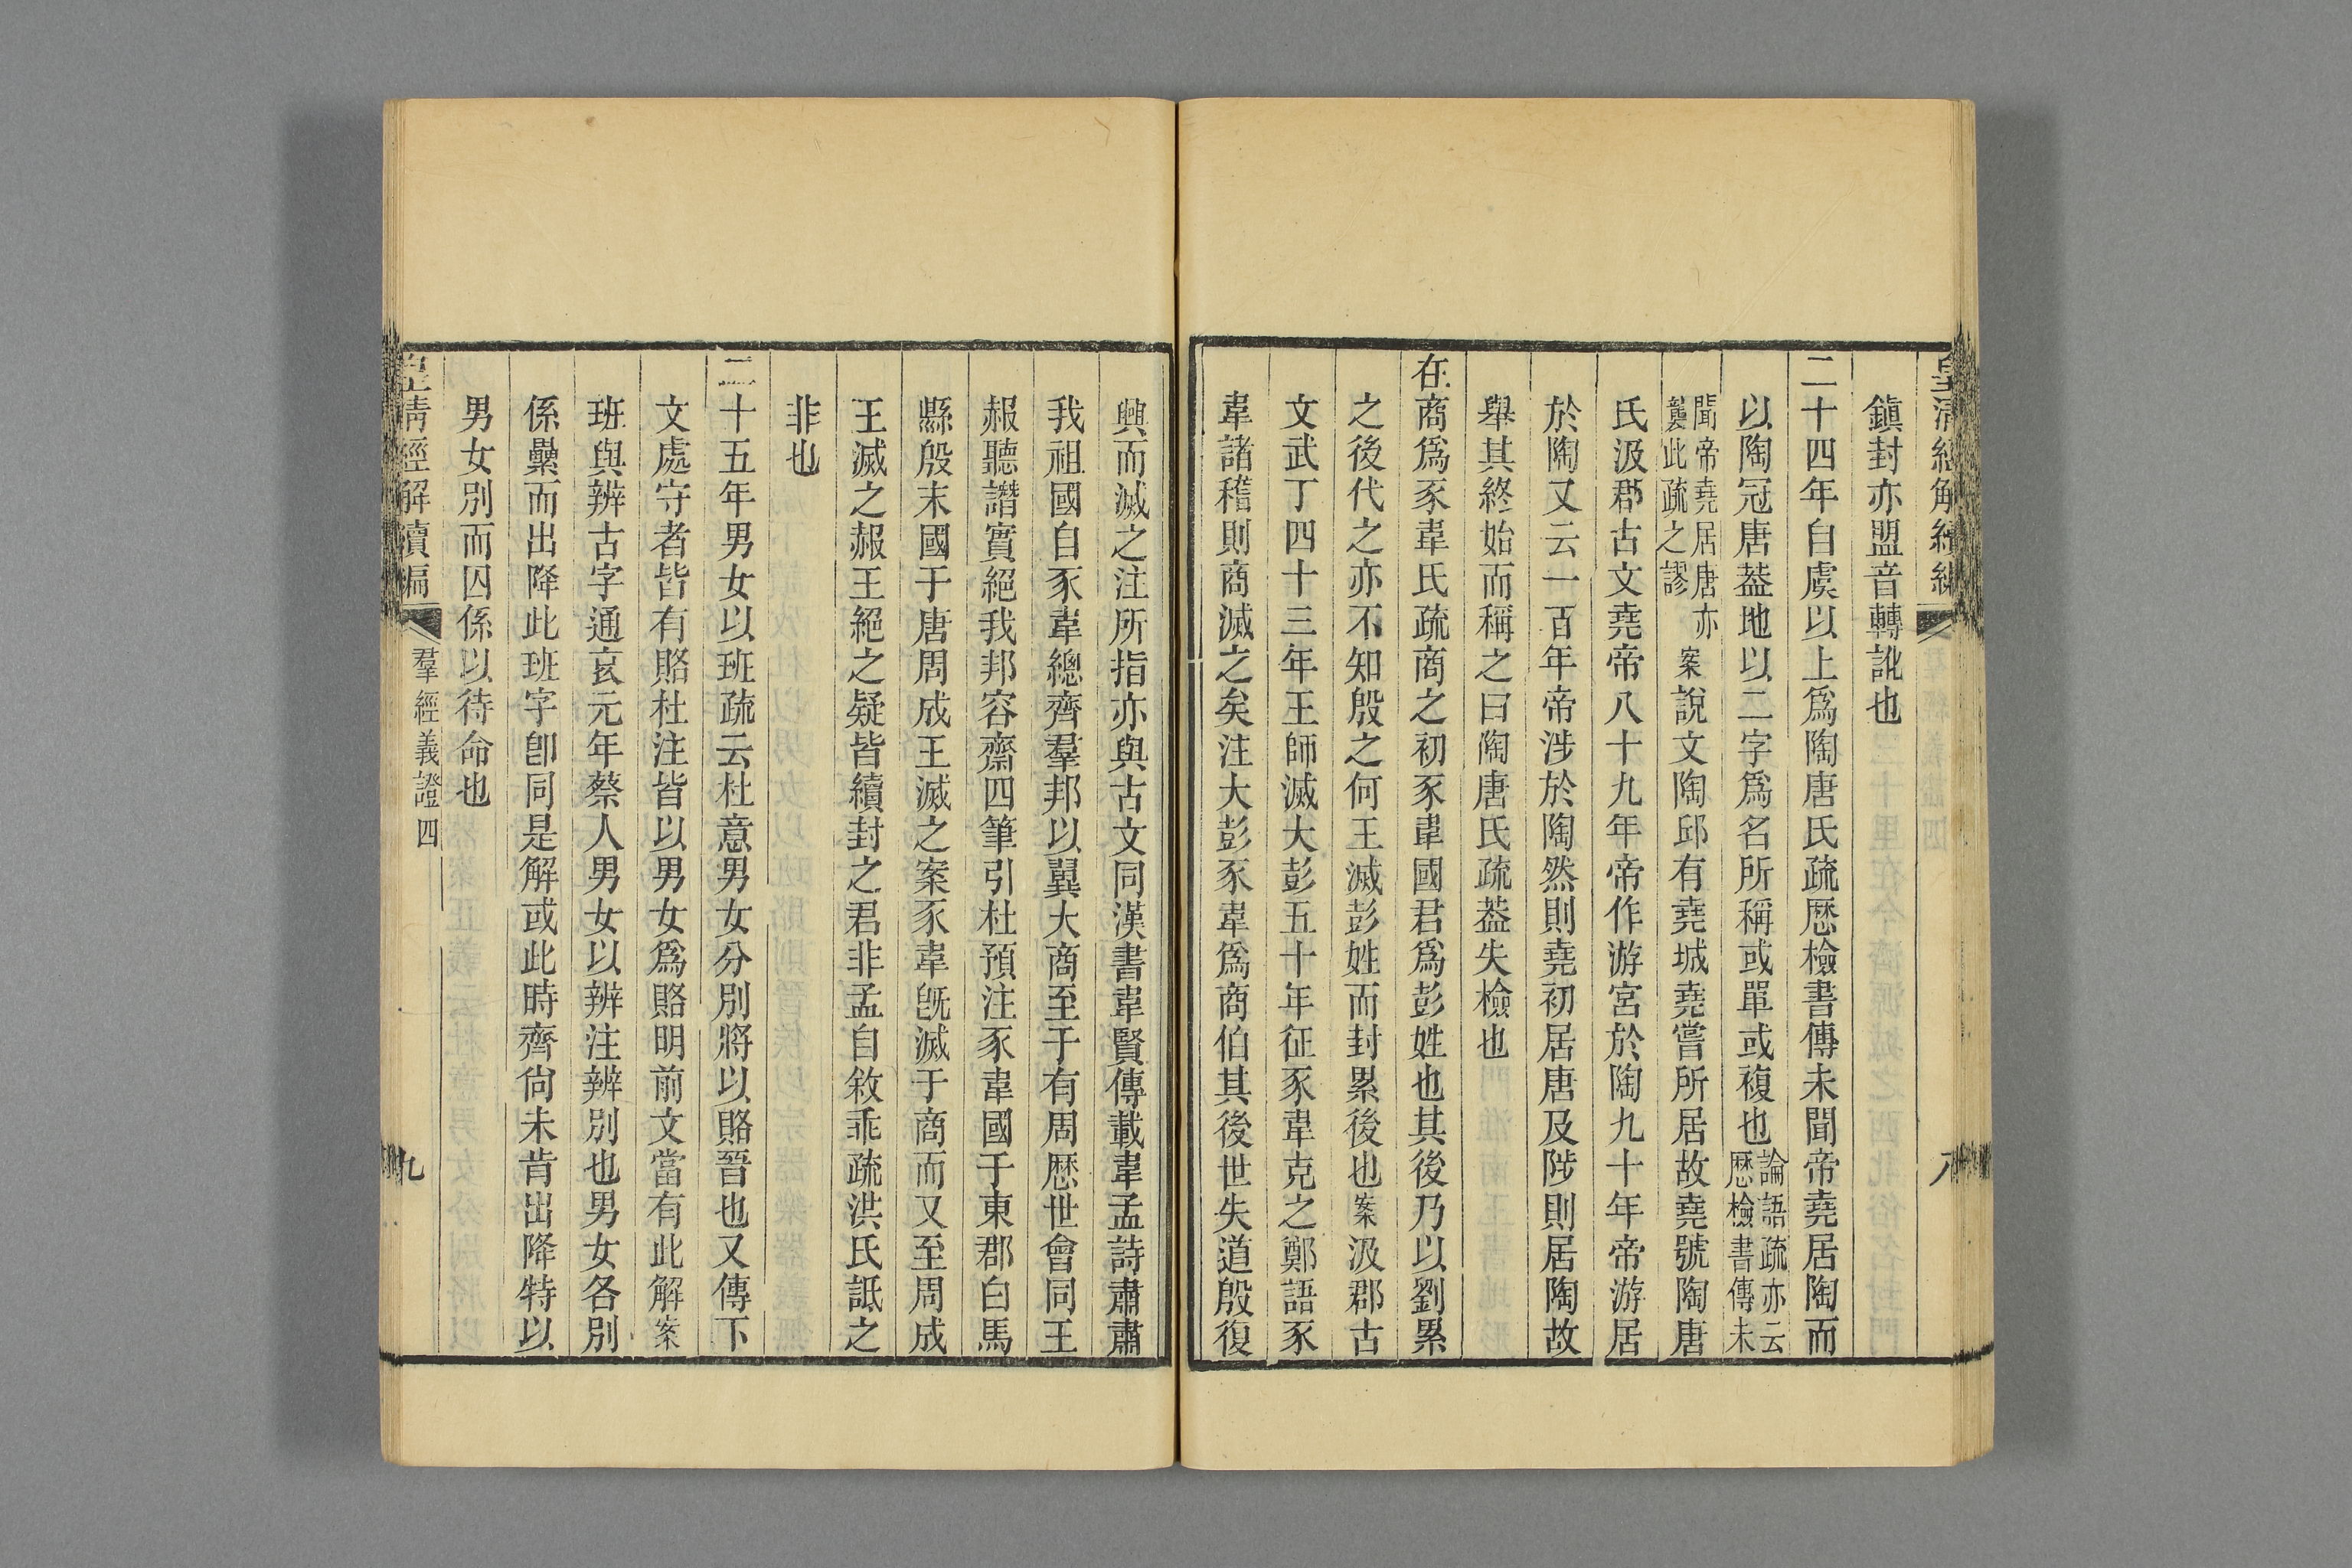 皇清經解續編
八
鎮封亦盟音轉訛也
二十四年自虞以上爲陶唐氏疏歷檢書傳未聞帝堯居陶而
以陶冠唐葢地以二字爲名所稱或單或複也論語疏亦云歷檢書傳未
聞帝堯居唐亦襲此疏之謬案說文陶邱有堯城堯嘗所居故堯號陶唐
氏汲郡古文堯帝八十九年帝作游宮於陶九十年帝游居
於陶又云一百年帝涉於陶然則堯初居唐及陟則居陶故
舉其終始而稱之曰陶唐氏疏葢失檢也
在商爲豕韋氏疏商之初豕韋國君爲彭姓也其後乃以劉累
之後代之亦不知殷之何王滅彭姓而封累後也案汲郡古
文武丁四十三年王師滅大彭五十年征豕韋克之鄭語豕
韋諸稽則商滅之矣注大彭豕韋爲商伯其後世失道殷復
興而滅之注所指亦與古文同漢書韋賢傳載韋孟詩肅肅
我祖國自豕韋總齊羣邦以翼大商至于有周歷世會同王
赧聽譖實絕我邦容齋四筆引杜預注豕韋國于東郡白馬
縣殷末國于唐周成王滅之案豕韋旣滅于商而又至周成
王滅之赧王絕之疑皆續封之君非孟自敘乖疏洪氏詆之
非也
二十五年男女以班疏云杜意男女分別將以賂晉也又傳下
文處守者皆有賂杜注皆以男女爲賂明前文當有此解案
班與辨古字通哀元年蔡人男女以辨注辨別也男女各別
係纍而出降此班字卽同是解或此時齊尙未肯出降特以
男女別而囚係以待命也
皇清經解續編
羣經義證四
九